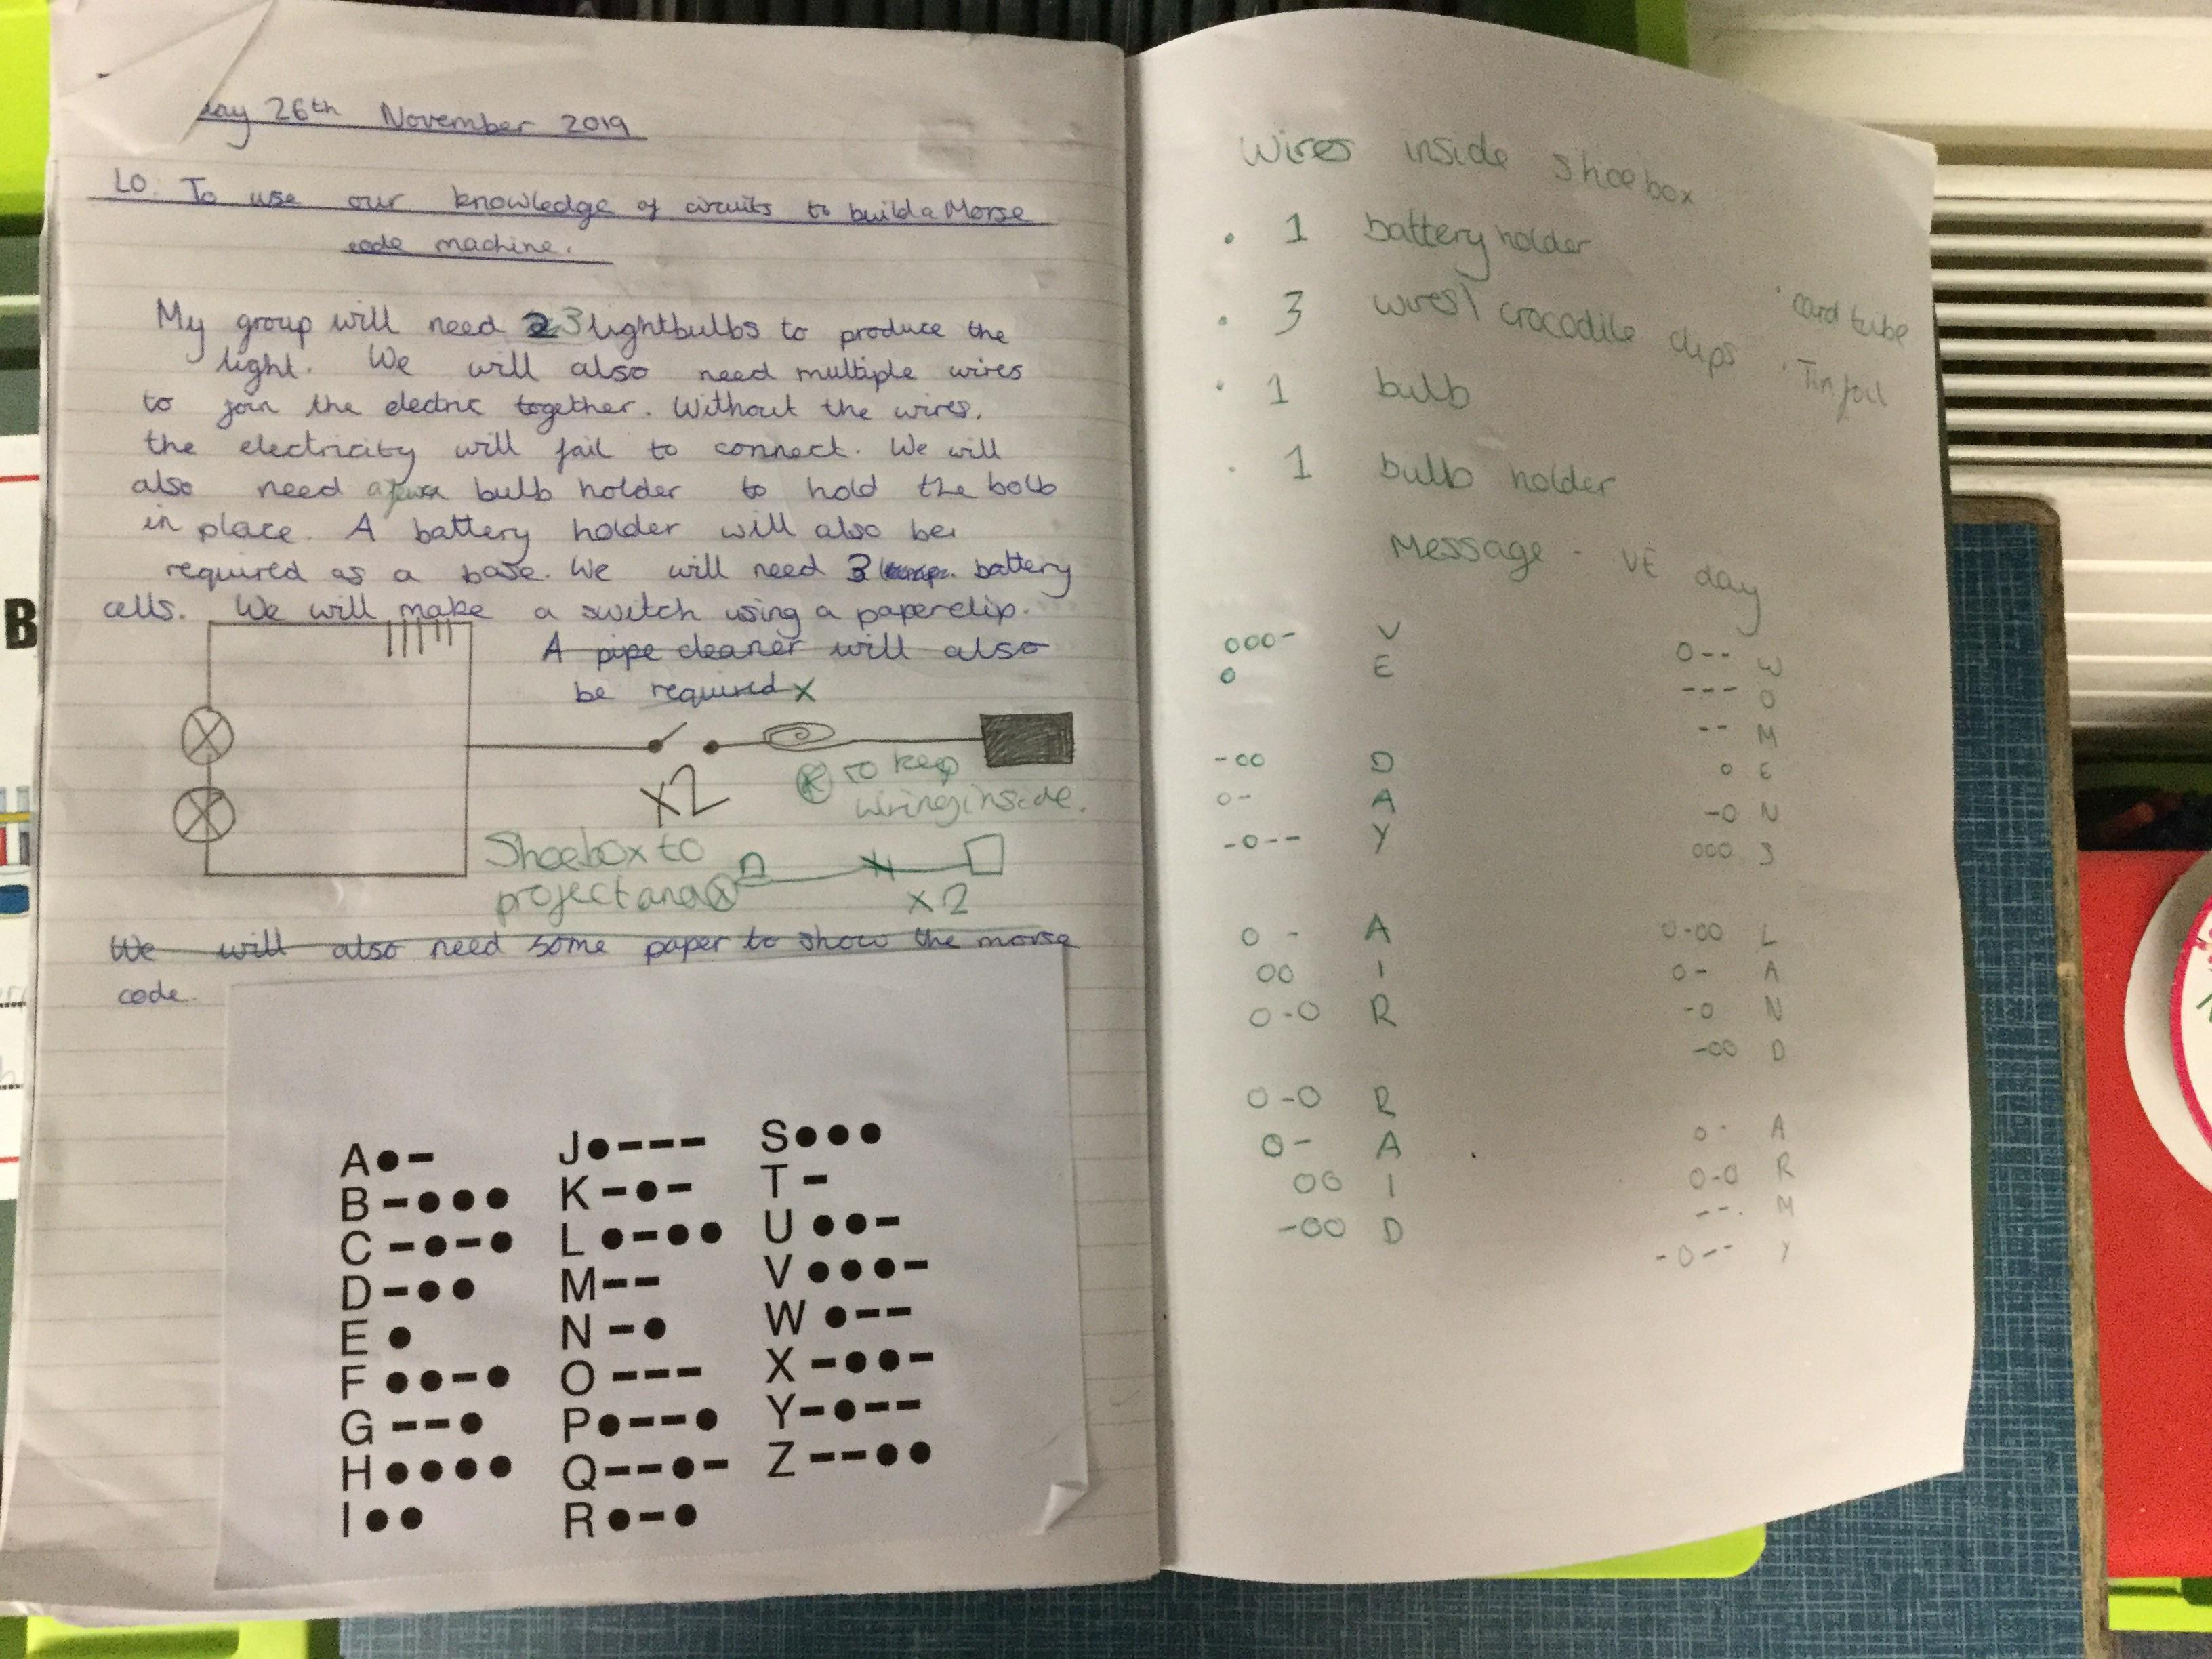 day 26th November 2019
LO: To use our knowledge of circuits to build a Morse
code machine.
My group will need 3 lightbulbs to produce the
light. We will also need multiple wires
to join the electric together. Without the wires,
the electricity will fail to connect. We will
also need a bulb holder to hold the bolb
in place. A battery holder will also be
required as a base. We will need 3 battery
cells. We will make a switch using a paperclip.
A pipe cleaner will also
be required x
x2
to keep
wiring inside.
Shoebox to
project and
x2
We will also need some paper to show the morse
code.
A ●–
B –●●●
C –●–●
D –●●
E ●
F ●●–●
G ––●
H ●●●●
I ●●
J ●–––
K –●–
L ●–●●
M ––
N –●
O –––
P ●––●
Q ––●–
R ●–●
S ●●●
T –
U ●●–
V ●●●–
W ●––
X –●●–
Y –●––
Z ––●●
Wires inside shoebox
• 1 battery holder
• 3 wires\ crocodile clips
• 1 bulb
• 1 bulb holder
• card tube
• Tin foil
Message - VE day
ooo- V
o E
-oo D
o- A
-o-- Y
o - A
oo I
o-o R
o-o R
o- A
oo I
-oo D
o-- W
--- O
-- M
o E
-o N
ooo S
o-oo L
o- A
-o N
-oo D
o- A
o-o R
-- M
-o-- Y
B